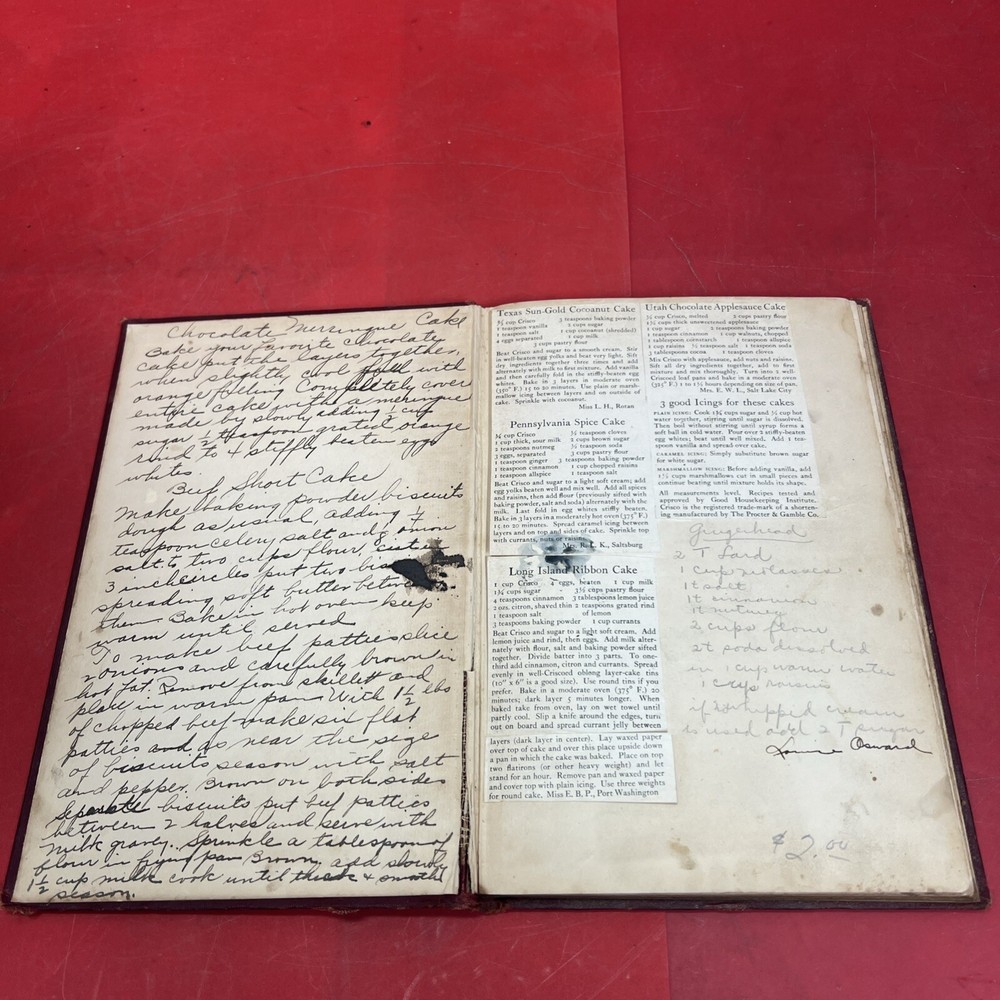 Chocolate Merringue Cake
Bake your favorite chocolate
cake put the layers together,
when slightly cool with
orange filling Completely cover
entire cake with a meringue
made by slowly adding 1/2 cup
sugar 2 teaspoons grated orange
rind to 4 stiffly beaten egg
whites.
Beef Short Cake
Make baking powder biscuits
dough as usual, adding
teaspoon celery salt and onion
salt to two cups flour,
3 in circles put two
spreading soft butter between
them Bake in hot oven keep
warm until served
To make beef patties slice
2 onions and carefully brown in
hot fat. Remove from skillett and
place in warm pan. With 1 1/2 lbs
of chopped beef make six flat
patties and as near the size
of biscuits season with salt
and pepper. Brown on both sides
Seperate biscuits put beef patties
between 2 halves and serve with
milk gravy. Sprinkle a tablespoon of
flour in frying pan Brown, add slowly
1 1/2 cup milk cook until thick & smooth
season.
Texas Sun-Gold Cocoanut Cake
3/4 cup Crisco 3 teaspoons baking powder
1 teaspoon vanilla 2 cups sugar
1 teaspoon salt 1 cup cocoanut (shredded)
4 eggs separated 1 cup milk
3 cups pastry flour
Beat Crisco and sugar to a smooth cream. Stir
in well-beaten egg yolks and beat very light. Sift
dry ingredients together three times and add
alternately with milk to first mixture. Add vanilla
and then carefully fold in the stiffly-beaten egg
whites. Bake in 3 layers in moderate oven
(350° F.) 15 to 20 minutes. Use plain or marsh-
mallow icing between layers and on outside of
cake. Sprinkle with cocoanut.
Miss L. H., Rotan
Pennsylvania Spice Cake
3/4 cup Crisco 1/2 teaspoon cloves
1 cup thick, sour milk 2 cups brown sugar
2 teaspoons nutmeg 1/2 teaspoon soda
3 eggs, separated 3 cups pastry flour
1 teaspoon ginger 3 teaspoons baking powder
1 teaspoon cinnamon 1 cup chopped raisins
1 teaspoon allspice 1 teaspoon salt
Beat Crisco and sugar to a light soft cream; add
egg yolks beaten well and mix well. Add all spices
and raisins, then add flour (previously sifted with
baking powder, salt and soda) alternately with the
milk. Last fold in egg whites stiffly beaten.
Bake in 3 layers in a moderately hot oven (375° F.)
15 to 20 minutes. Spread caramel icing between
layers and on top and sides of cake. Sprinkle top
with currants, nuts or raisins.
Mrs. R. L. K., Saltsburg
Long Island Ribbon Cake
1 cup Crisco 4 eggs, beaten 1 cup milk
1 3/4 cups sugar 3 1/2 cups pastry flour
4 teaspoons cinnamon 3 tablespoons lemon juice
2 ozs. citron, shaved thin 2 teaspoons grated rind
1 teaspoon salt of lemon
3 teaspoons baking powder 1 cup currants
Beat Crisco and sugar to a light soft cream. Add
lemon juice and rind, then eggs. Add milk alter-
nately with flour, salt and baking powder sifted
together. Divide batter into 3 parts. To one-
third add cinnamon, citron and currants. Spread
evenly in well-Criscoed oblong layer-cake tins
(10" x 6" is a good size). Use round tins if you
prefer. Bake in a moderate oven (375° F.) 20
minutes; dark layer 5 minutes longer. When
baked take from oven, lay on wet towel until
partly cool. Slip a knife around the edges, turn
out on board and spread currant jelly between
layers (dark layer in center). Lay waxed paper
over top of cake and over this place upside down
a pan in which the cake was baked. Place on top
two flatirons (or other heavy weight) and let
stand for an hour. Remove pan and waxed paper
and cover top with plain icing. Use three weights
for round cake. Miss E. B. P., Port Washington
Utah Chocolate Applesauce Cake
1/2 cup Crisco, melted 2 cups pastry flour
1 1/2 cups thick unsweetened applesauce
1 cup sugar 2 teaspoons baking powder
1 teaspoon cinnamon 1 cup walnuts, chopped
1 tablespoon cornstarch 1 teaspoon allspice
1 cup raisins 1/2 teaspoon salt 1 teaspoon soda
2 tablespoons cocoa 1 teaspoon cloves
Mix Crisco with applesauce, add nuts and raisins.
Sift all dry ingredients together, add to first
mixture and mix thoroughly. Turn into 2 well-
greased loaf pans and bake in a moderate oven
(325° F.) 1 to 1 1/2 hours depending on size of pan.
Mrs. E. W. L., Salt Lake City
3 good Icings for these cakes
PLAIN ICING: Cook 1 3/4 cups sugar and 1/2 cup hot
water together, stirring until sugar is dissolved.
Then boil without stirring until syrup forms a
soft ball in cold water. Pour over 2 stiffly-beaten
egg whites; beat until well mixed. Add 1 tea-
spoon vanilla and spread over cake.
CARAMEL ICING: Simply substitute brown sugar
for white sugar.
MARSHMALLOW ICING: Before adding vanilla, add
1 1/2 cups marshmallows cut in small pieces and
continue beating until mixture holds its shape.
All measurements level. Recipes tested and
approved by Good Housekeeping Institute.
Crisco is the registered trade-mark of a shorten-
ing manufactured by The Procter & Gamble Co.
Gingerbread
2 T Lard
1 cup molasses
1t salt
1t cinnamon
1t nutmeg
2 cups flour
2t soda dissolved
in 1 cup warm water
1 cup raisins
if whipped cream
is used add 2 T sugar
Osward
$2.00